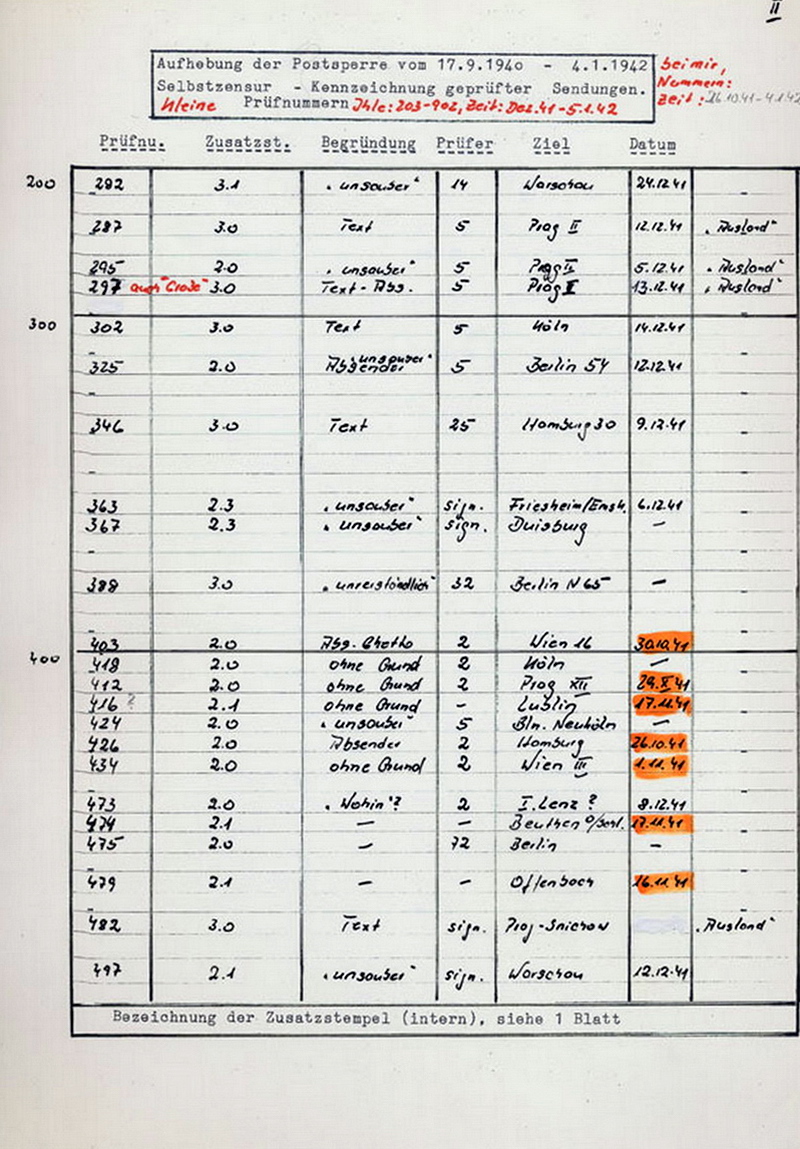 II
Aufhebung der Postsperre vom 17.9.1940 - 4.1.1942
Selbstzensur - Kennzeichnung geprüfter Sendungen.
Kleine Prüfnummern Ihle: 203-902, Zeit: Dez. 41 - 5.1.42
bei mir,
Nummern:
Zeit: 26.10.41 - 4.1.42
Prüfnu. Zusatzst. Begründung Prüfer Ziel Datum
200 282 3.1 "unsauber" 14 Warschau 24.12.41
287 3.0 Text 5 Prag II 12.12.41 "Ausland"
295 2.0 "unsauber" 5 Prag II 5.12.41 "Ausland"
297 auch "Große" 3.0 Text - Abs. 5 Prag I 13.12.41 "Ausland"
300 302 3.0 Text 5 Köln 14.12.41
325 2.0 "unsauber" Absender 5 Berlin 54 12.12.41
346 3.0 Text 25 Hamburg 30 9.12.41
363 2.3 "unsauber" sign. Friesheim/Emsk. 6.12.41
367 2.3 "unsauber" sign. Duisburg -
388 3.0 "unverständlich" 32 Berlin N 65 -
403 2.0 Abs. Ghetto 2 Wien 16 30.10.41
400 418 2.0 ohne Grund 2 Köln -
412 2.0 ohne Grund 2 Prag XII 29.X.41
416 ? 2.1 ohne Grund - Lublin 17.11.41
424 2.0 "unsauber" 5 Bln. Neuköln -
426 2.0 Absender 2 Hamburg 26.10.41
434 2.0 ohne Grund 2 Wien III 1.11.41
473 2.0 "Wohin"? 2 I. Lenz ? 8.12.41
474 2.1 - - Beuthen O/Schl. 17.11.41
475 2.0 - 72 Berlin -
479 2.1 - - Offenbach 16.11.41
482 3.0 Text sign. Prag-Smichow "Ausland"
497 2.1 "unsauber" sign. Warschau 12.12.41
Bezeichnung der Zusatzstempel (intern), siehe 1 Blatt